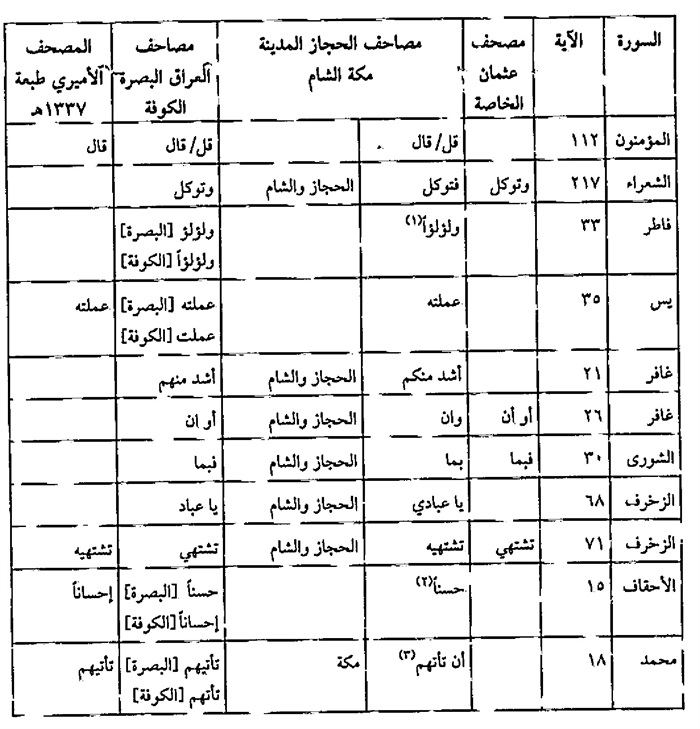 السورة | الآية | مصحف عثمان الخاصة | مصاحف الحجاز المدينة مكة الشام | مصاحف العراق البصرة الكوفة | المصحف الأميري طبعة ١٣٣٧هـ
المؤمنون | ١١٢ | | قل/ قال | | قل/ قال | قال
الشعراء | ٢١٧ | وتوكل | فتوكل | الحجاز والشام | وتوكل |
فاطر | ٣٣ | | ولؤلؤاً(١) | | ولؤلؤ [البصرة]
ولؤلؤاً [الكوفة]
يس | ٣٥ | | عملته | | عملته [البصرة] | عملته
عملت [الكوفة]
غافر | ٢١ | | أشد منكم | الحجاز والشام | أشد منهم |
غافر | ٢٦ | أو أن | وان | الحجاز والشام | أو ان |
الشورى | ٣٠ | فبما | بما | الحجاز والشام | فبما |
الزخرف | ٦٨ | | يا عبادي | الحجاز والشام | يا عباد |
الزخرف | ٧١ | تشتهي | تشتهيه | الحجاز والشام | تشتهي | تشتهيه
الأحقاف | ١٥ | | حسناً(٢) | | حسناً [البصرة] | إحساناً
إحساناً [الكوفة]
محمد | ١٨ | | أن تأتهم(٣) | مكة | تأتيهم [البصرة] | تأتيهم
تأتهم [الكوفة]